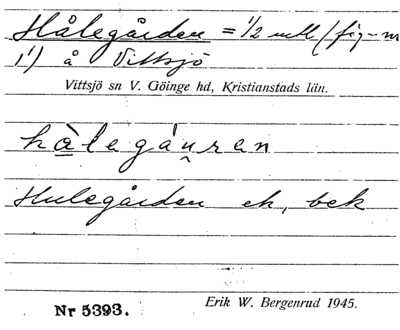 Hålegården = 1/2 mtl (fig-nr
1¹) å Vittsjö
Vittsjö sn V. Göinge hd, Kristianstads län.
hàlegáu̯ren
Hulegården ek, bek
Nr 5393.
Erik W. Bergenrud 1945.